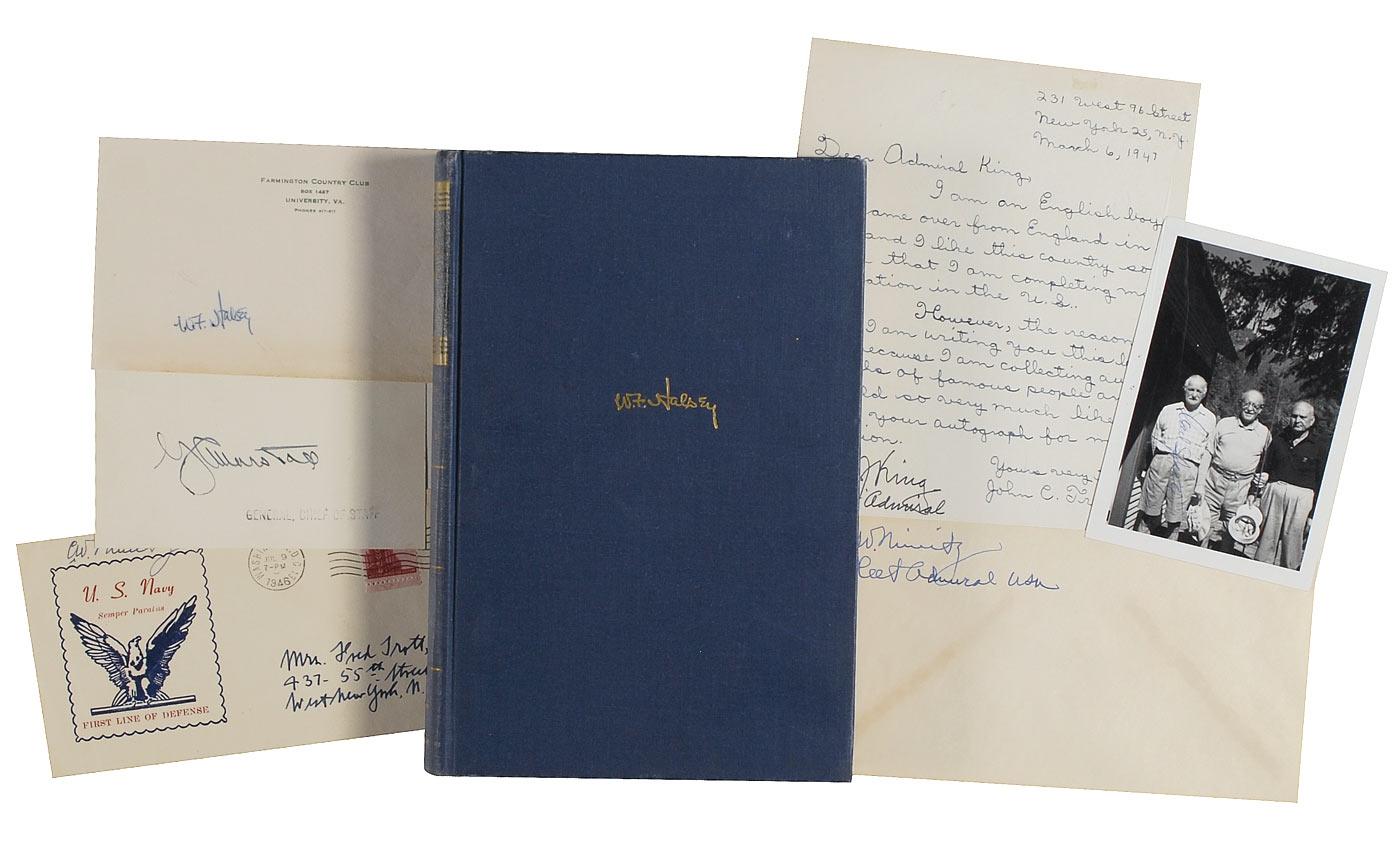 FARMINGTON COUNTRY CLUB
BOX 1487
UNIVERSITY, VA.
W.F. Halsey
GENERAL, CHIEF OF STAFF
U. S. Navy
Semper Paratus
FIRST LINE OF DEFENSE
1946
7-PM
Mrs. Fred Trott,
437- 55th Stree
West New York, N.
W.F. Halsey
231 West 96 Street
New York 25, N.Y.
March 6, 1947
Dear Admiral King,
I am an English boy
ame over from England in
and I like this country so
that I am completing m
ation in the U.S..
However, the reason
I am writing you this l
ecause I am collecting au
es of famous people an
ld so very much like
your autograph for m
ion.
Yours very t
John C. Tr
King
Admiral
W. Nimitz
leet Admiral USN